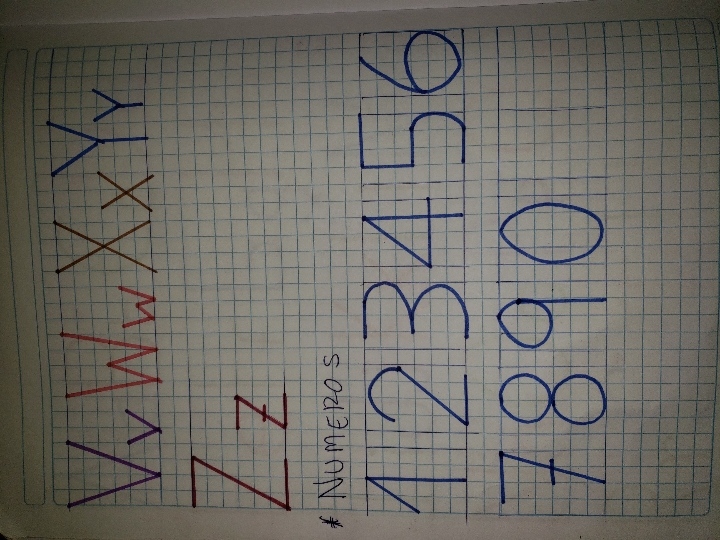 Vv Ww Xx Yy
Zz
* NUMEROS
123456
7890